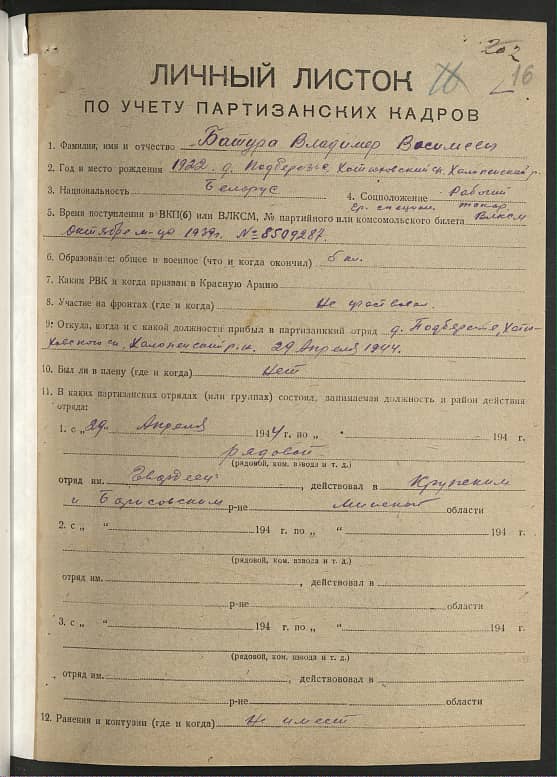 202
16
ЛИЧНЫЙ ЛИСТОК
ПО УЧЕТУ ПАРТИЗАНСКИХ КАДРОВ
1. Фамилия, имя и отчество Батура Владимер
2. Год и место рождения 1922 д. Подберозье,
3. Национальность Белорус 4. Соцположение Рабочий
токар
5. Время поступления в ВКП(б) или ВЛКСМ, № партийного или комсомольского билета ВЛКСМ
Октябре м-це 1939г. № 8509287.
6. Образование: общее и военное (что и когда окончил) 5 кл.
7. Каким РВК и когда призван в Красную Армию
8. Участие на фронтах (где и когда) Не участвовал
9. Откуда, когда и с какой должности прибыл в партизанкий отряд д.
29 Апреля 1944.
10. Был ли в плену (где и когда) Нет
11. В каких партизанских отрядах (или группах) состоял, занимаемая должность и район действия
отряда:
1. с „29 Апреля 1944 г. по „ “ 194 г.
рядовой
(рядовой, ком. взвода и т. д.)
отряд им. Гвардеец, действовал в Крупским
и Борисовским р-не Минской области
2. с „ “ 194 г. по „ “ 194 г.
(рядовой, ком. взвода и т. д.)
отряд им. , действовал в
р-не области
3. с „ “ 194 г. по „ “ 194 г.
(рядовой, ком. взвода и т. д.)
отряд им. , действововал в
р-не области
12. Ранения и контузии (где и когда) Не имеет